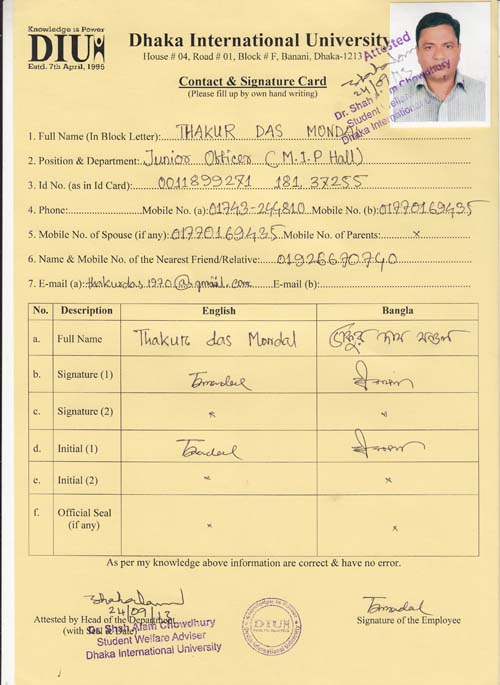 Knowledge is Power
DIU
Estd. 7th April, 1995
Dhaka International University
House # 04, Road # 01, Block # F, Banani, Dhaka-1213
Contact & Signature Card
(Please fill up by own hand writing)
Attested
24/09/13
Dr. Shah Alam Chowdhury
Student Welfare
Dhaka International
1. Full Name (In Block Letter): THAKUR DAS MONDAL
2. Position & Department: Junior Officer (M.I.P Hall)
3. Id No. (as in Id Card): 0011899271 181, 37255
4. Phone: Mobile No. (a): 01743-244810 Mobile No. (b): 01770169435
5. Mobile No. of Spouse (if any): 01770169435 Mobile No. of Parents: ×
6. Name & Mobile No. of the Nearest Friend/Relative: 01926670740
7. E-mail (a): thakurdas1970@gmail.com E-mail (b):
No. Description English Bangla
a. Full Name Thakur das Mondal ঠাকুর দাস মন্ডল
b. Signature (1)
c. Signature (2) × ×
d. Initial (1)
e. Initial (2) × ×
f. Official Seal × ×
(if any)
As per my knowledge above information are correct & have no error.
24/09/13
Attested by Head of the Department
(with Seal & Date)
Dr. Shah Alam Chowdhury
Student Welfare Adviser
Dhaka International University
Knowledge is Power
DIU
Dhaka International University
Signature of the Employee